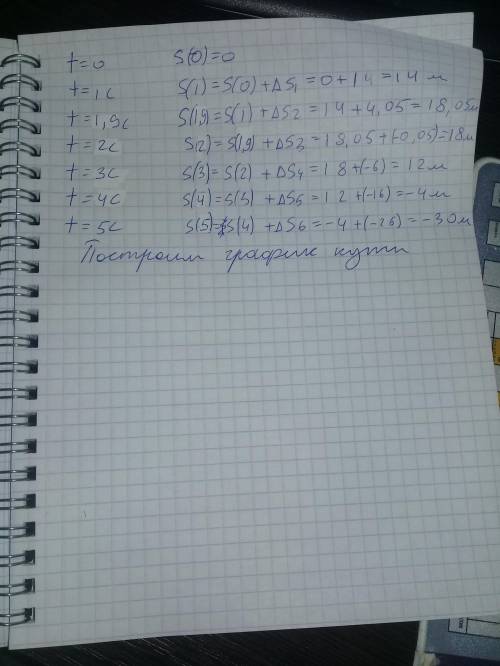 t=0 S(0)=0
t=1c S(1)=S(0)+ΔS₁=0+14=14м
t=1,9c S(1,9)=S(1)+ΔS₂=14+4,05=18,05м
t=2c S(2)=S(1,9)+ΔS₃=18,05+(-0,05)=18м
t=3c S(3)=S(2)+ΔS₄=18+(-6)=12м
t=4c S(4)=S(3)+ΔS₅=12+(-16)=-4м
t=5c S(5)=S(4)+ΔS₆=-4+(-26)=-30м
Построим график пути